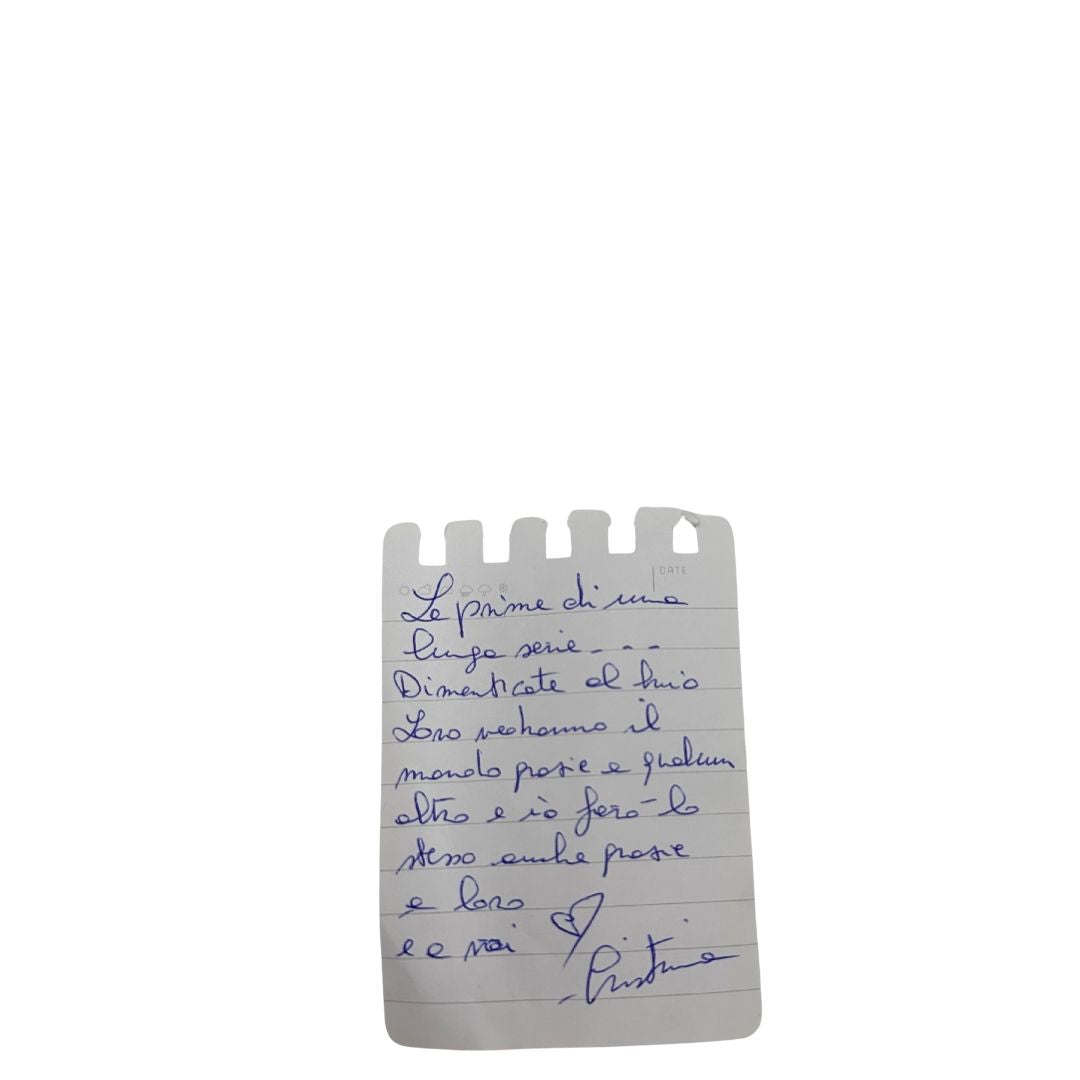 DATE
La prima di una
lunga serie...
Dimenticate al buio
Loro vedranno il
mondo grazie a qualcun
altro e io farò lo
stesso anche grazie
a loro
e a voi
Cristina